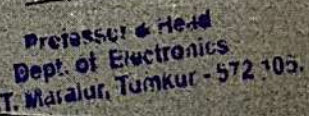 Professor & Head
Dept. of Electronics
T. Maralur, Tumkur - 572 105.